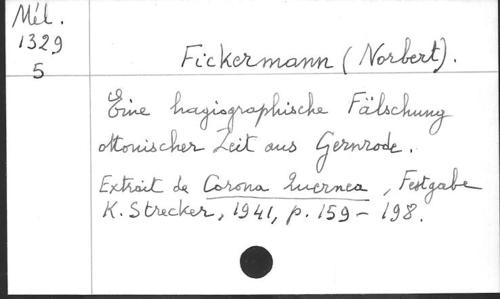 Mél.
1329
5
Fickermann (Norbert).
Eine hagiographische Fälschung
ottonischer Zeit aus Gernrode.
Extrait de Corona Quernea, Festgabe
K. Strecker, 1941, p. 159-198.